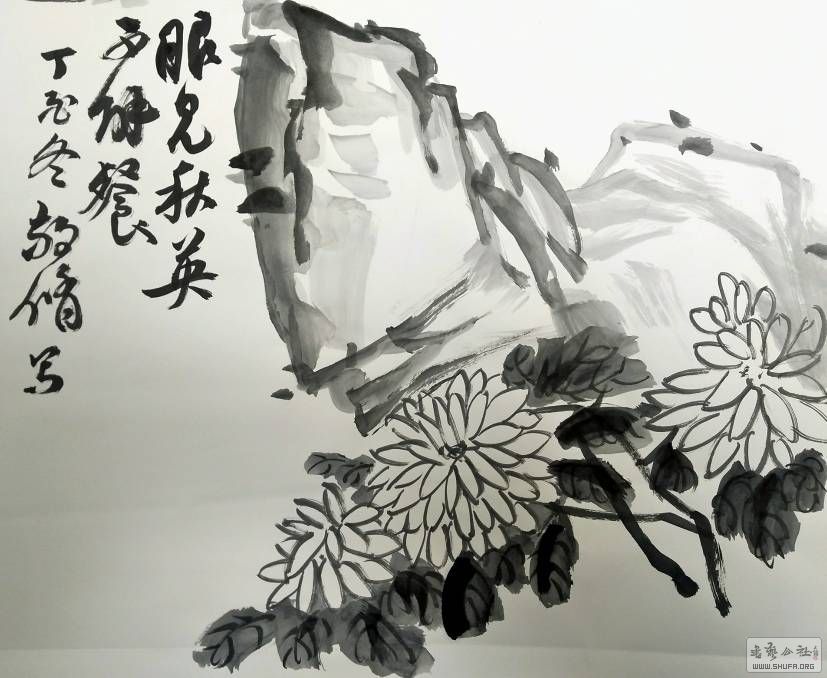 眼見秋英
餐
丁酉冬敬脩写
书艺公社
WWW.SHUFA.ORG